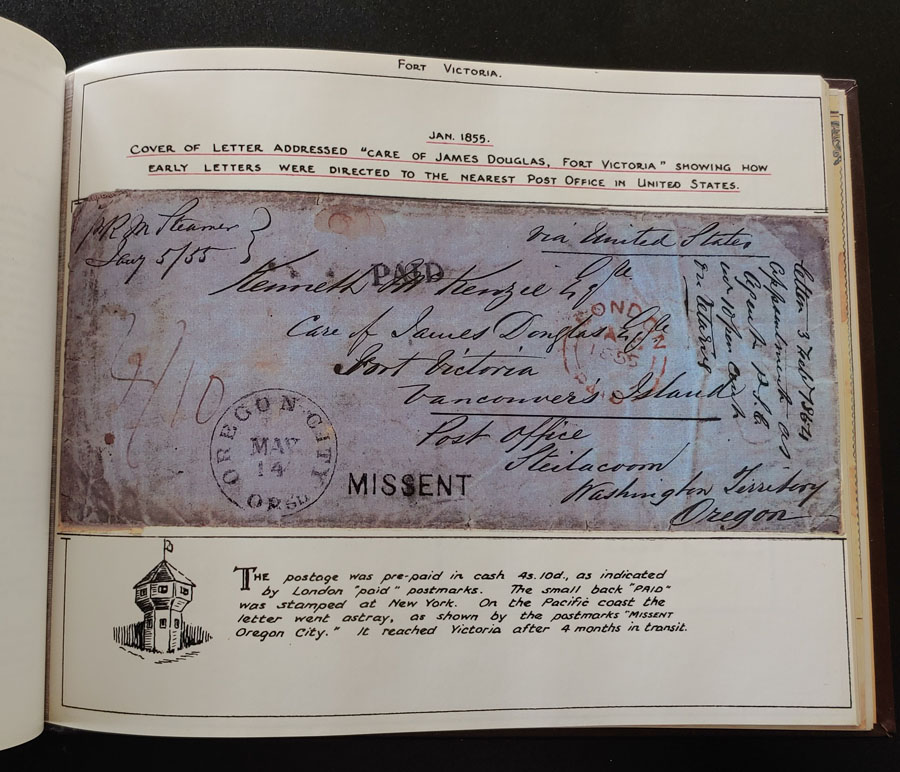 FORT VICTORIA.
JAN. 1855.
COVER OF LETTER ADDRESSED "CARE OF JAMES DOUGLAS, FORT VICTORIA" SHOWING HOW
EARLY LETTERS WERE DIRECTED TO THE NEAREST POST OFFICE IN UNITED STATES.
p R M Steamer
Jany 5/55
via United States
PAID
Kenneth McKenzie Esqre
Care of James Douglas Esqre
Fort Victoria
Vancouvers Island
Post Office
Steilacoom
Washington Territory
Oregon
LONDON
1855
PAID
4/10
OREGON CITY
MAY
14
MISSENT
THE postage was pre-paid in cash 4s.10d., as indicated
by London "paid" postmarks. The small back "PAID"
was stamped at New York. On the Pacific coast the
letter went astray, as shown by the postmarks "MISSENT
Oregon City." It reached Victoria after 4 months in transit.